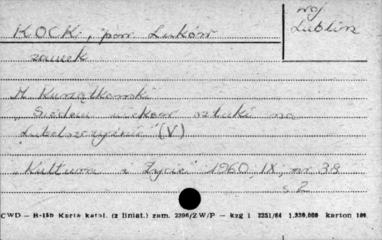 woj
KOCK, pow Łuków
Lublin
zamek
H. Kunatkowski
"Siedem wieków sztuki na
Lubelszczyźnie" (V)
"Kultura i Życie" 1960, IX, nr 38
s 2
CWD — H-15b Karta katal. (z liniat.) zam. 2206/Z W/P — kzg 1 2251/64 1.330.000 karton 100